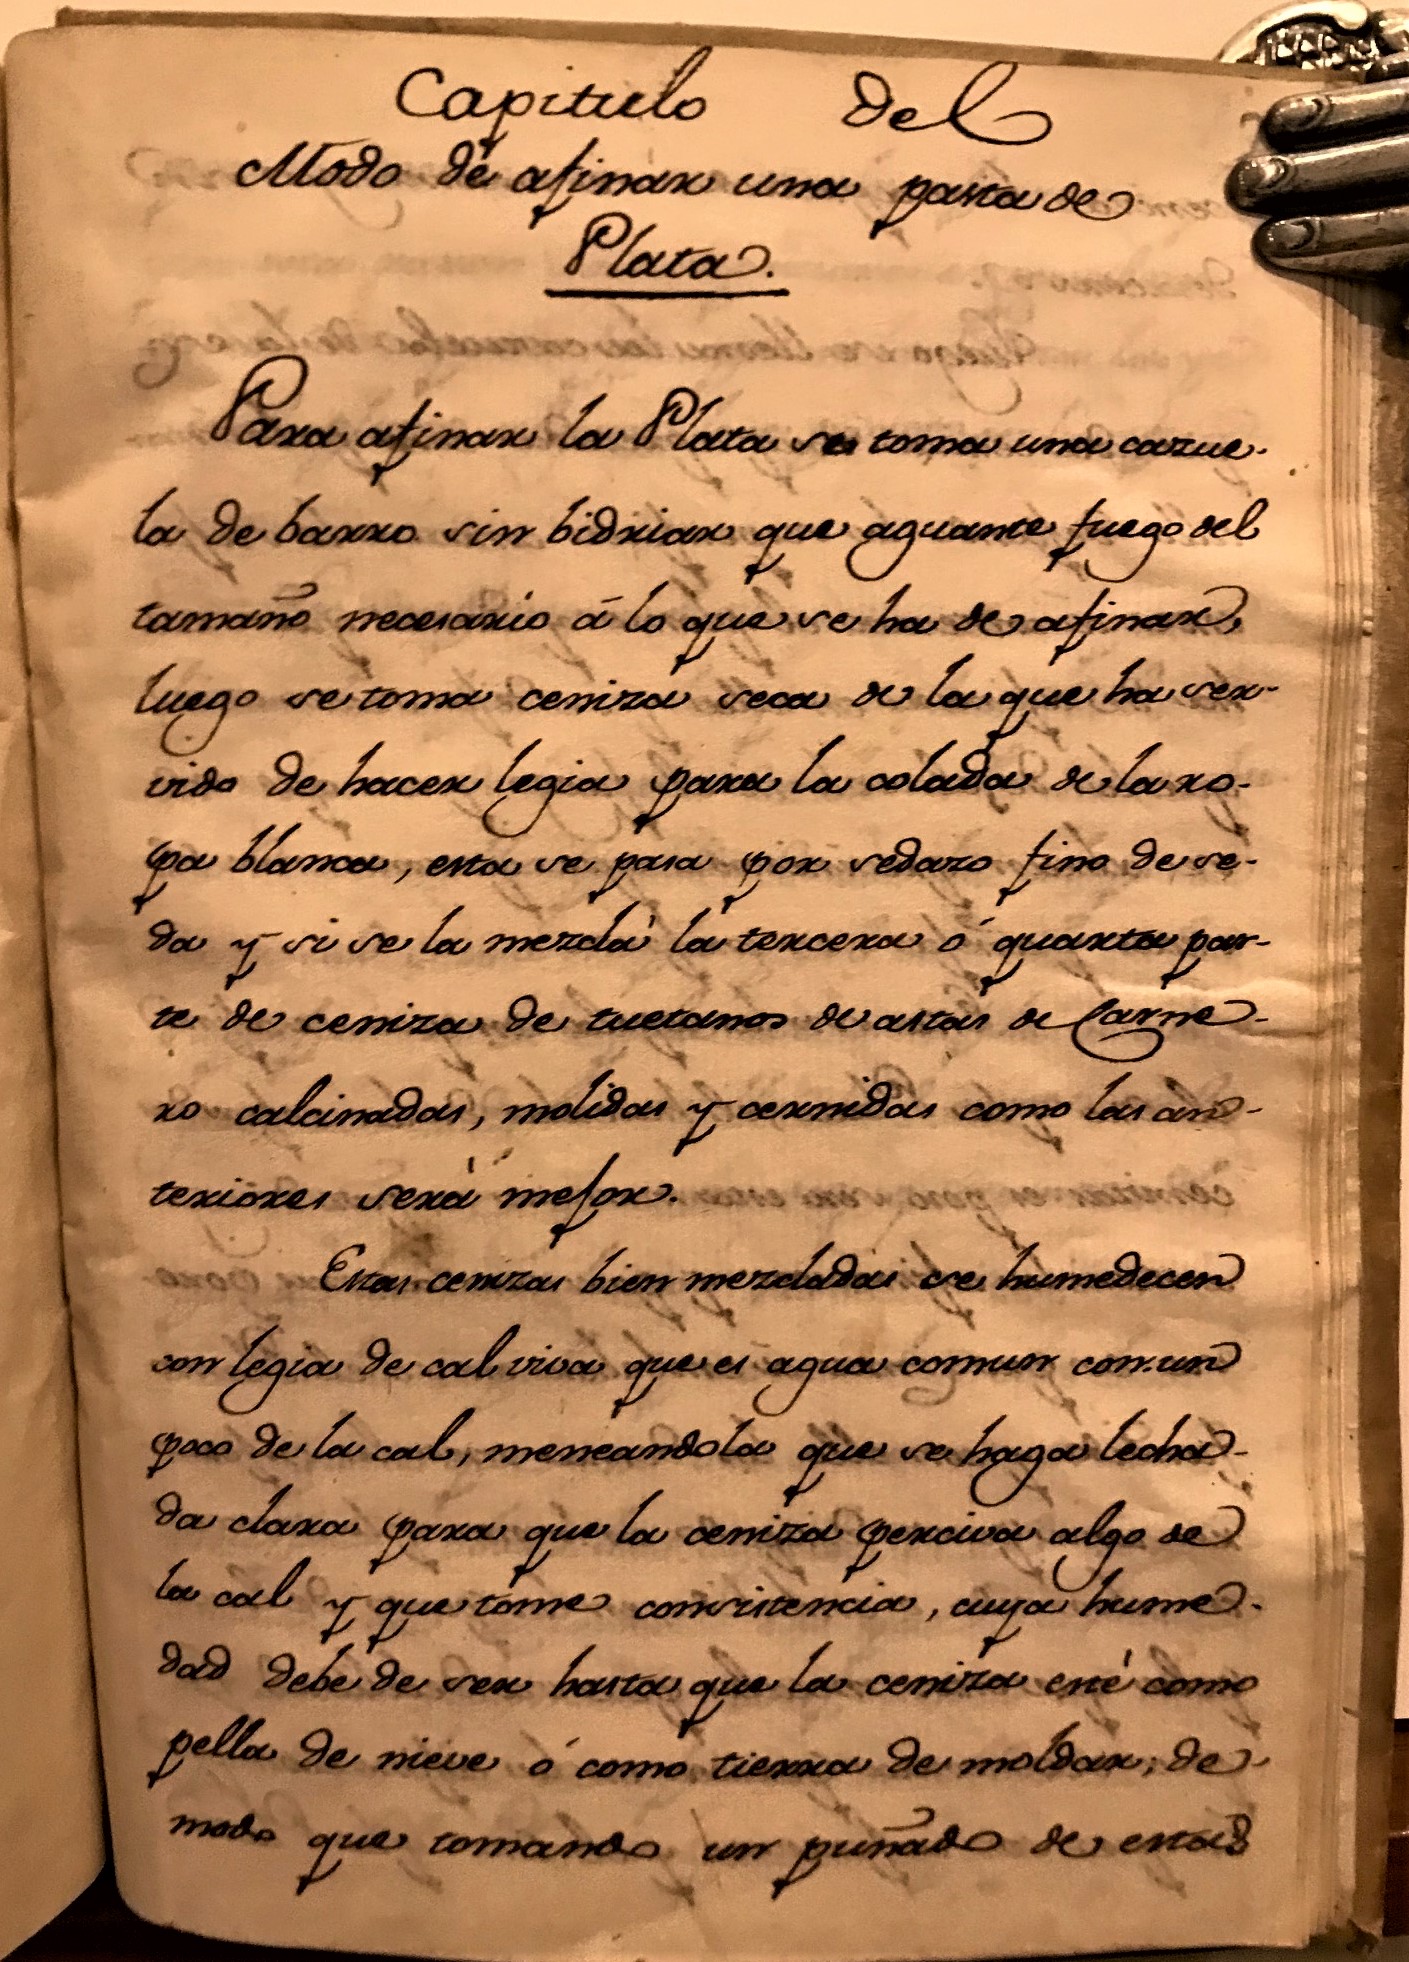 Capitulo del
Modo de afinar una pasta de
Plata.
Para afinar la Plata se toma una cazue-
la de barro sin bidriar que aguante fuego del
tamaño necesario á lo que se ha de afinar,
luego se toma ceniza seca de la que ha ser-
vido de hacer legia para la colada de la ro-
pa blanca, esta se pasa por sedazo fino de se-
da y si se la mezclà la tercera ó quarta par-
te de ceniza de tuetanos de astas de Carne-
ro calcinadas, molidas y cernidas como las an-
teriores serà mejor.
Estas cenizas bien mezcladas se humedecen
con legia de cal viva que es agua comun con un
poco de la cal, meneandola que se haga lecha-
da clara para que la ceniza perciva algo de
la cal y que tome consistencia, cuya hume-
dad debe de ser hasta que la ceniza esté como
pella de nieve ó como tierra de moldar, de
modo que tomando un puñado de estas